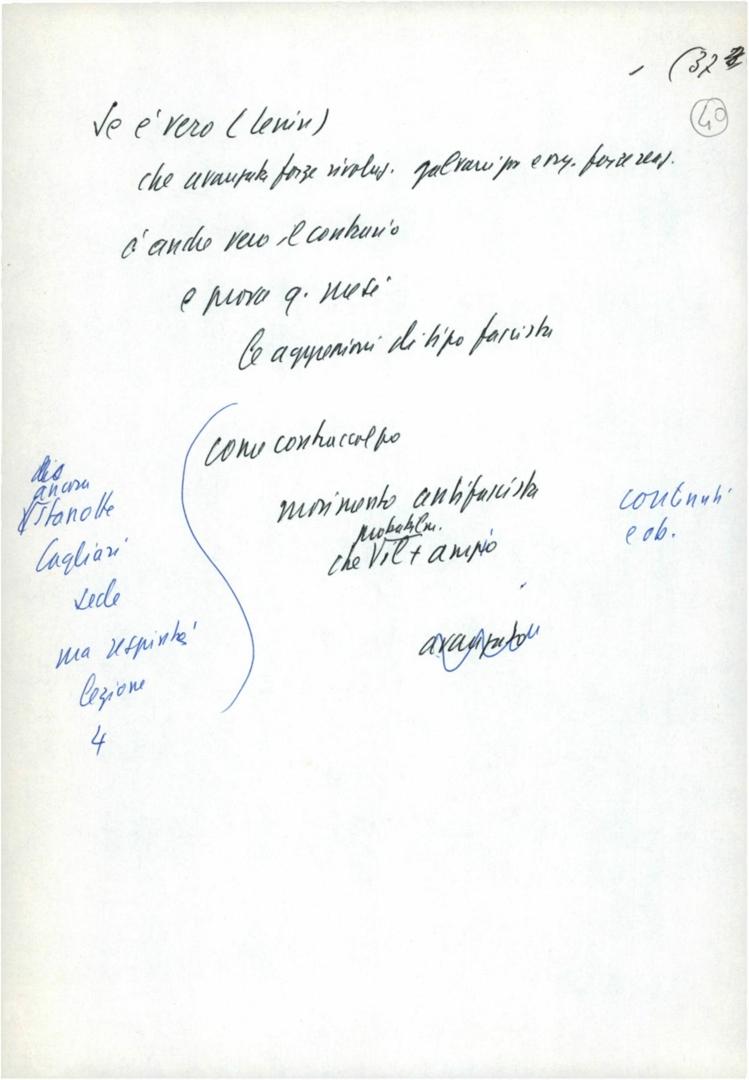 (37
40
Se è vero (Lenin)
che avanzata forze rivoluz. forze reaz.
è anche vero il contrario
e prova q. mesi
le aggressioni di tipo fascista
come contraccolpo
movimento antifascista
probabilm.
che è il + ampio
avanzato
contenuti
e ob.
ancora
Stanotte
Cagliari
sede
ma respinta
lezione
4